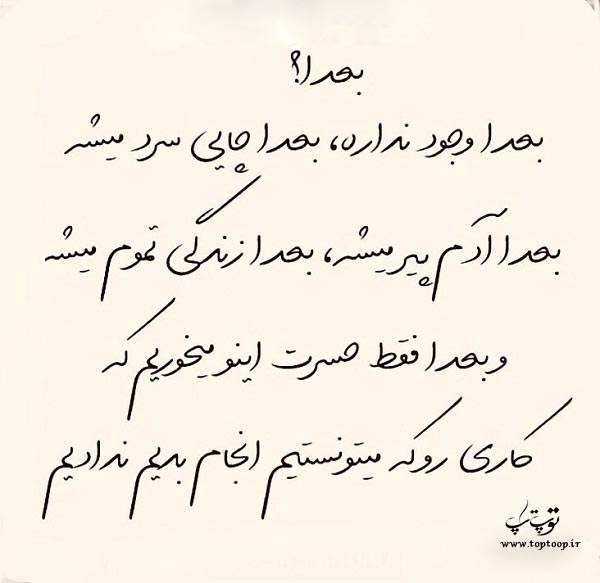 بعدا؟
بعدا وجود نداره، بعدا چایی سرد میشه
بعدا آدم پیر میشه، بعدا زندگی تموم میشه
و بعدا فقط حسرت اینو میخوریم که
کاری رو که میتونستیم انجام بدیم ندادیم
توپ تاپ
www.toptoop.ir